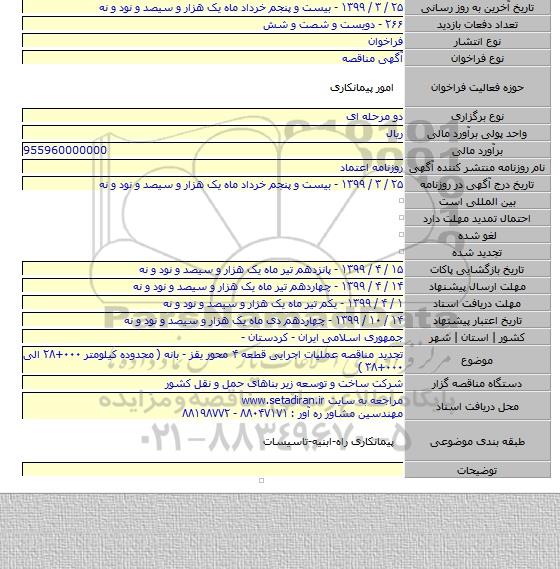 تاریخ آخرین به روز رسانی ۲۵ / ۳ / ۱۳۹۹ - بیست و پنجم خرداد ماه یک هزار و سیصد و نود و نه
تعداد دفعات بازدید ۲۶۶ - دویست و شصت و شش
نوع انتشار فراخوان
نوع فراخوان آگهی مناقصه
حوزه فعالیت فراخوان امور پیمانکاری
نوع برگزاری دو مرحله ای
واحد پولی برآورد مالی ریال
برآورد مالی 955960000000
نام روزنامه منتشر کننده آگهی روزنامه اعتماد
تاریخ درج آگهی در روزنامه ۲۵ / ۳ / ۱۳۹۹ - بیست و پنجم خرداد ماه یک هزار و سیصد و نود و نه
بین المللی است
احتمال تمدید مهلت دارد
لغو شده
تجدید شده
تاریخ بازگشایی پاکات ۱۵ / ۴ / ۱۳۹۹ - پانزدهم تیر ماه یک هزار و سیصد و نود و نه
مهلت ارسال پیشنهاد ۱۴ / ۴ / ۱۳۹۹ - چهاردهم تیر ماه یک هزار و سیصد و نود و نه
مهلت دریافت اسناد ۱ / ۴ / ۱۳۹۹ - یکم تیر ماه یک هزار و سیصد و نود و نه
تاریخ اعتبار پیشنهاد ۱۴ / ۱۰ / ۱۳۹۹ - چهاردهم دی ماه یک هزار و سیصد و نود و نه
کشور | استان | شهر جمهوری اسلامی ایران - کردستان -
موضوع تجدید مناقصه عملیات اجرایی قطعه ۴ محور سقز - بانه ( محدوده کیلومتر ۰۰۰+۲۸ الی
۰۰۰+۳۸ )
دستگاه مناقصه گزار شرکت ساخت و توسعه زیر بناهای حمل و نقل کشور
محل دریافت اسناد مراجعه به سایت www.setadiran.ir
مهندسین مشاور ره آور : ۸۸۰۴۷۱۷۱ - ۸۸۱۹۸۷۷۲
طبقه بندی موضوعی پیمانکاری راه-ابنیه-تاسیسات
توضیحات
۰۲۱-۸۸۳۴۹۶۷۰-۵